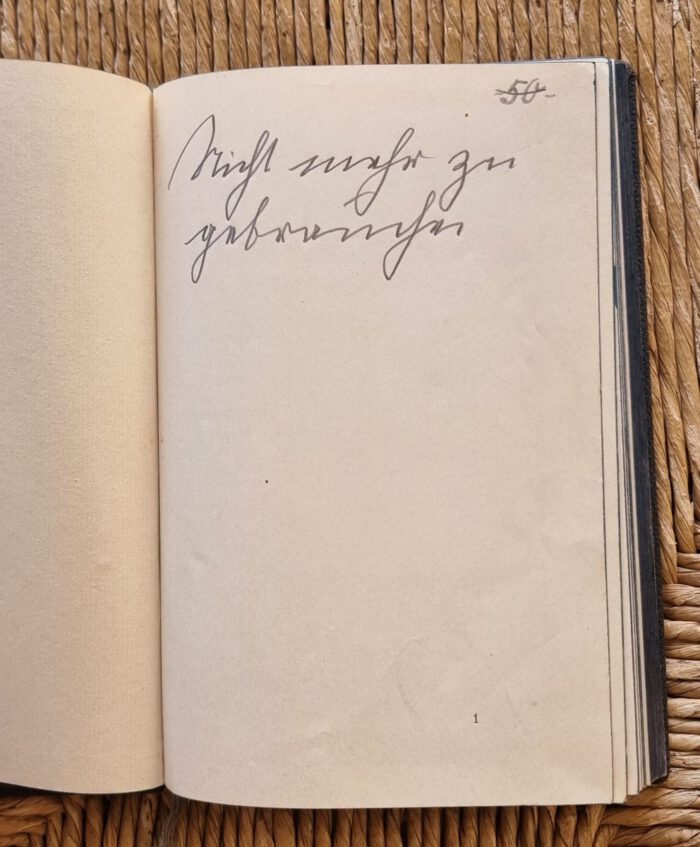 50-
Nicht mehr zu
gebrauchen
1